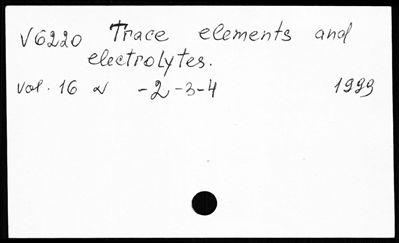 V6220 Trace elements and
electrolytes.
vol. 16 N -2-3-4 1999